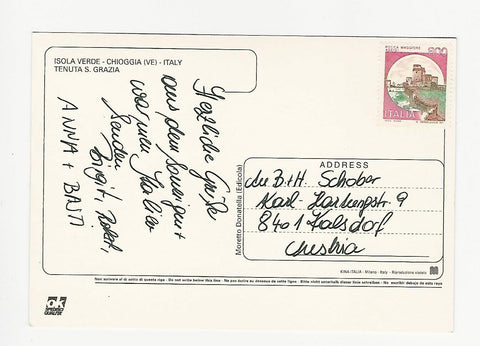 ISOLA VERDE - CHIOGGIA (VE) - ITALY
TENUTA S. GRAZIA
POSTE ITALIANE
800
ITALIA
Herzliche Grüße
aus dem
warmen Italien
senden
Birgit, Robert,
ANNA + BATI
Moretto Donatella (Edicola)
ADDRESS
B.+H. Schober
Karl-
8401 Kalsdorf
Austria
KINA ITALIA - Milano - Italy - Riproduzione vietata
Non scrivere al di sotto di questa riga - Do not write below this line - Ne pas écrire au dessous de cette ligne - Bitte nicht unterhalb dieser linie schreiben - No escribir debajo de esta raya
ok